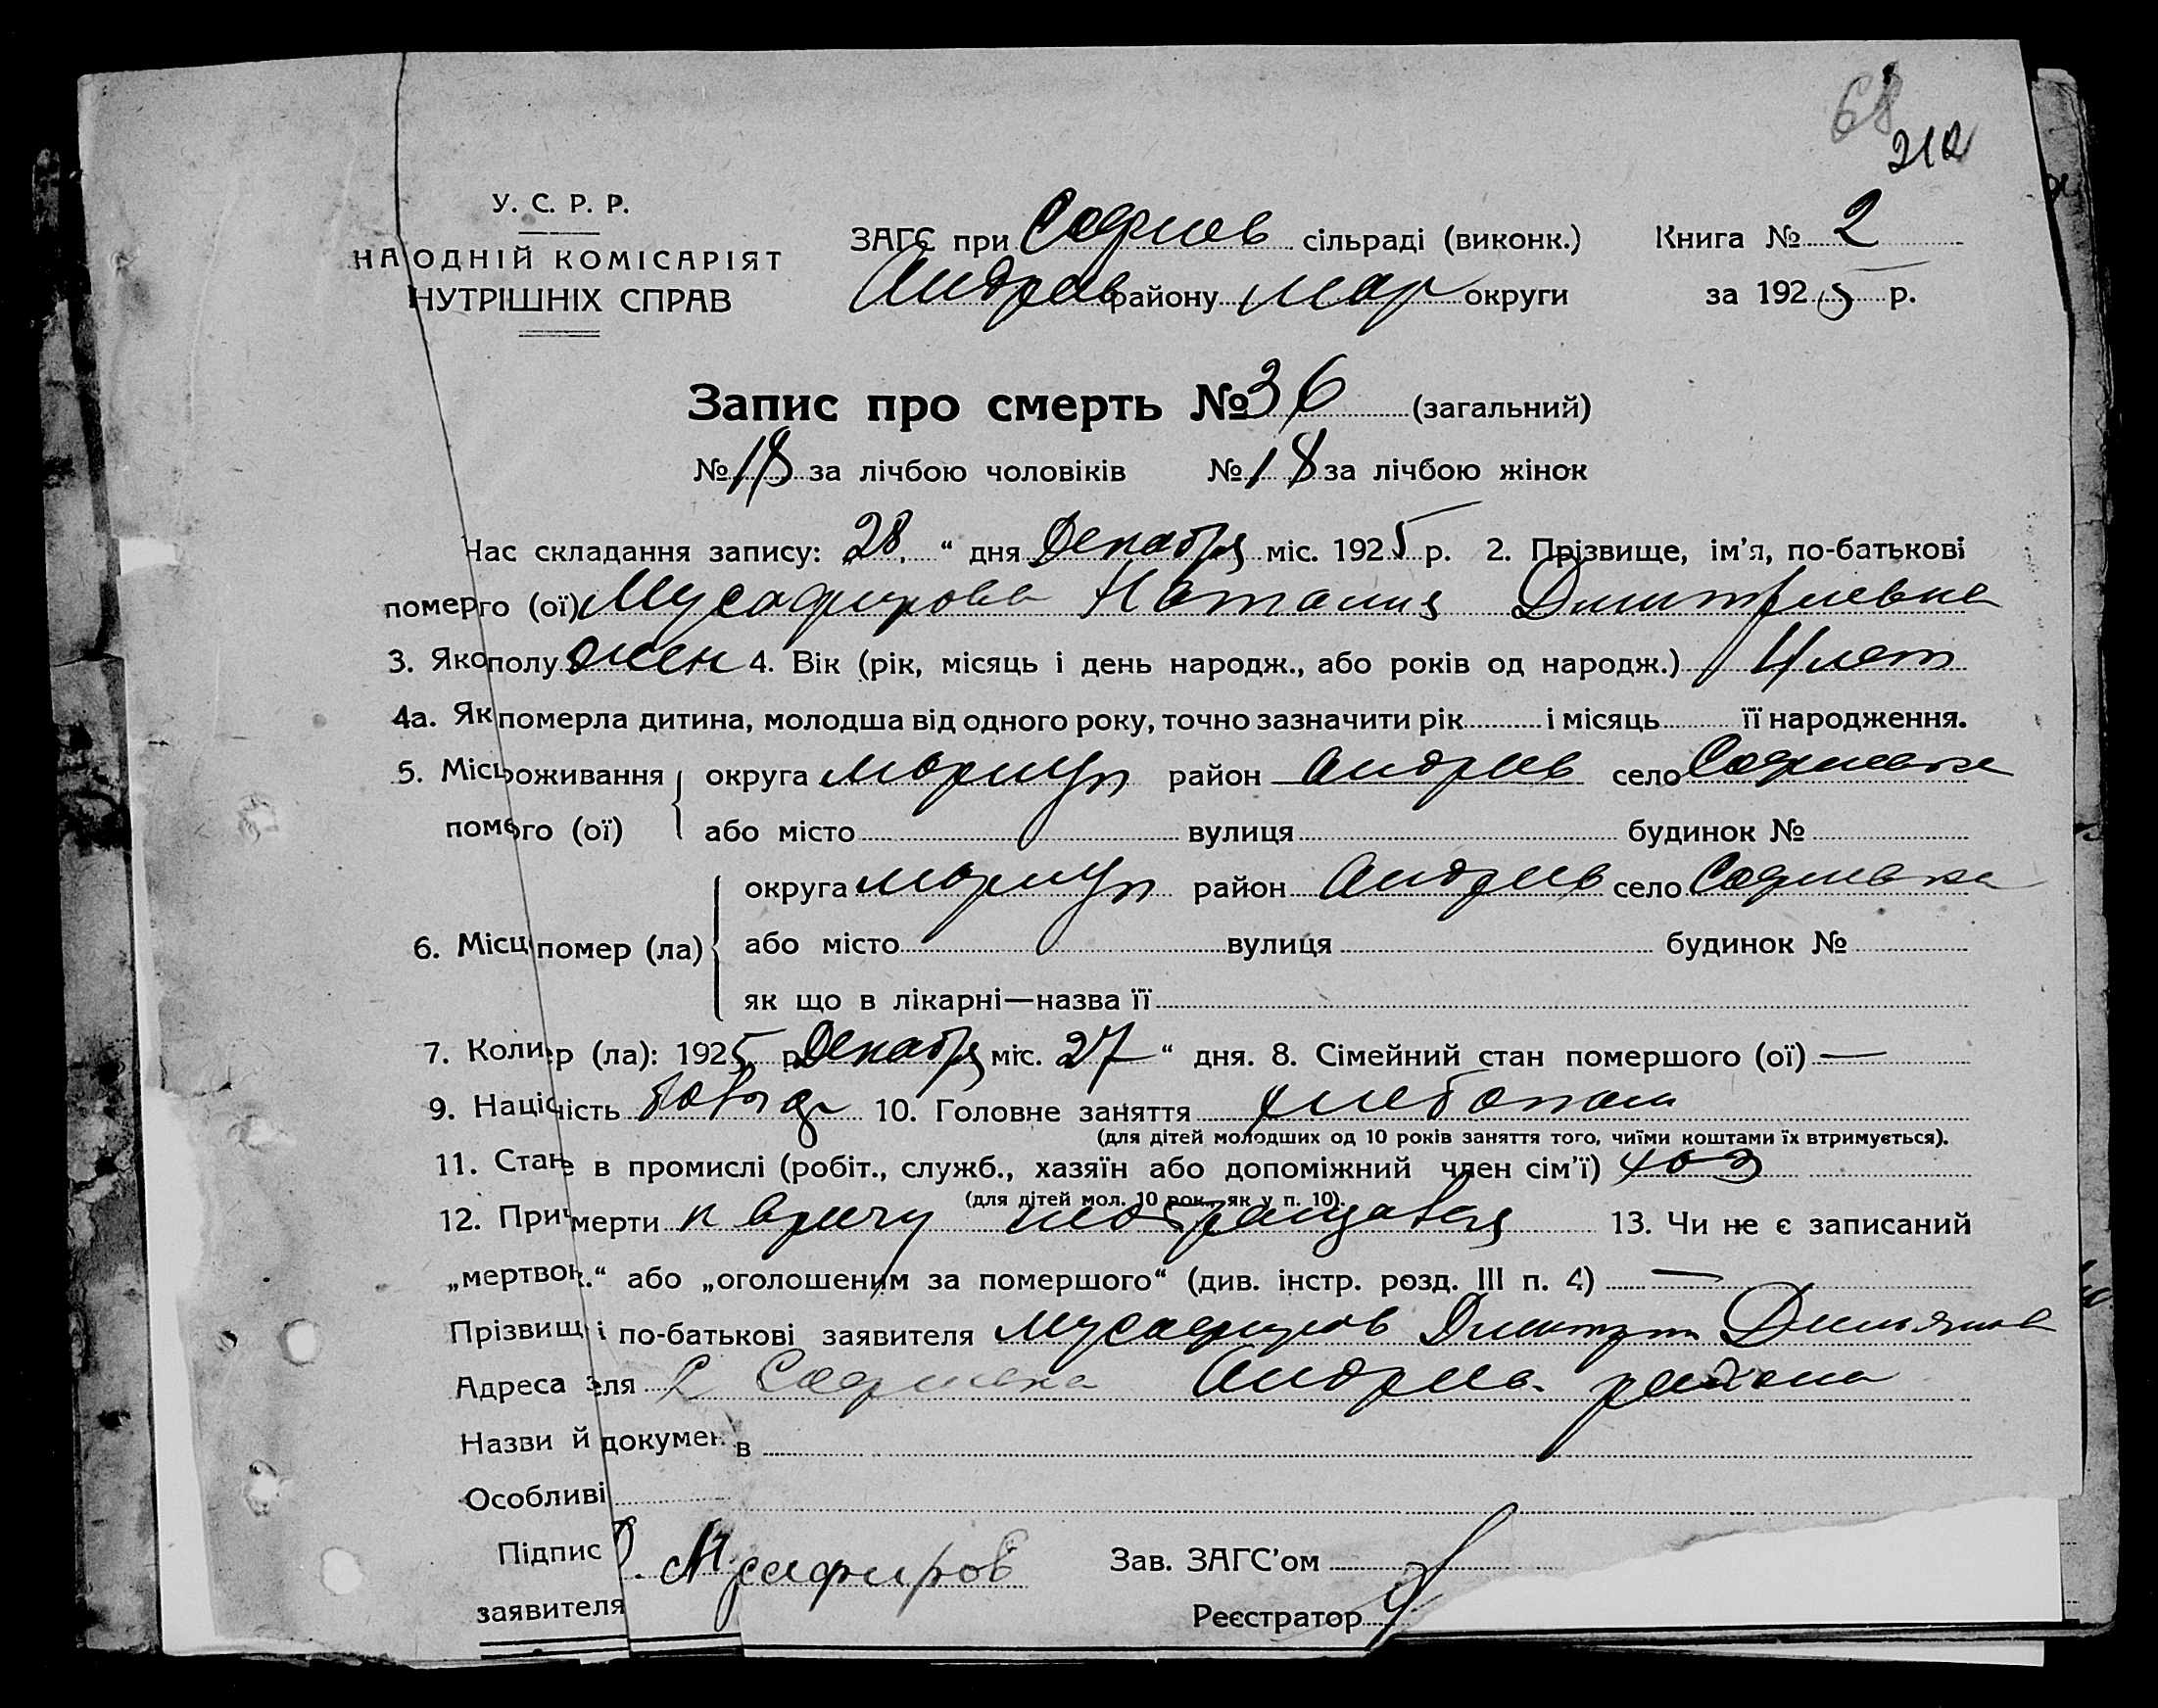 68
212
У. С. Р. Р.
НА ОДНІЙ КОМІСАРІЯТ
НУТРІШНІХ СПРАВ
ЗАГС при Софиев сільраді (виконк.) Книга № 2
Андреев району Мар округи за 1925 р.
Запис про смерть № 36 (загальний)
№ 18 за лічбою чоловіків № 18 за лічбою жінок
Час складання запису: 28 “ дня Декабря міс. 1925 р. 2. Прізвище, ім’я, по-батькові
померго (ої) Мусафирова Наталия Дмитриевна
3. Яко полу жен 4. Вік (рік, місяць і день народж., або років од народж.) 4 лет
4а. Як померла дитина, молодша від одного року, точно зазначити рік і місяць її народження.
5. Місц оживання округа Мариуп район Андреев село Софиевка
помого (ої) або місто вулиця будинок №
округа Мариуп район Андреев село Софиевка
6. Місц помер (ла) або місто вулиця будинок №
як що в лікарні—назва її
7. Коли р (ла): 1925 р. Декабря міс. 27 “ дня. 8. Сімейний стан помершого (ої) —
9. Націс ність 10. Головне заняття хлебопаш
(для дітей молодших од 10 років заняття того, чиїми коштами їх втримується).
11. Стан е в промислі (робіт., служб., хазяїн або допоміжний член сім’ї) хоз
(для дітей мол. 10 рок., як у п. 10).
12. Прич мерти к врачу 13. Чи не є записаний
„мертвон.“ або „оголошеним за помершого“ (див. інстр. розд. III п. 4) —
Прізвищ і по-батькові заявителя Мусафиров Дмитрий
Адреса зля С Софиевка Андреев. района
Назви й докумен в
Особливі
Підпис Д. Мусафиров Зав. ЗАГС’ом
заявителя Реєстратор